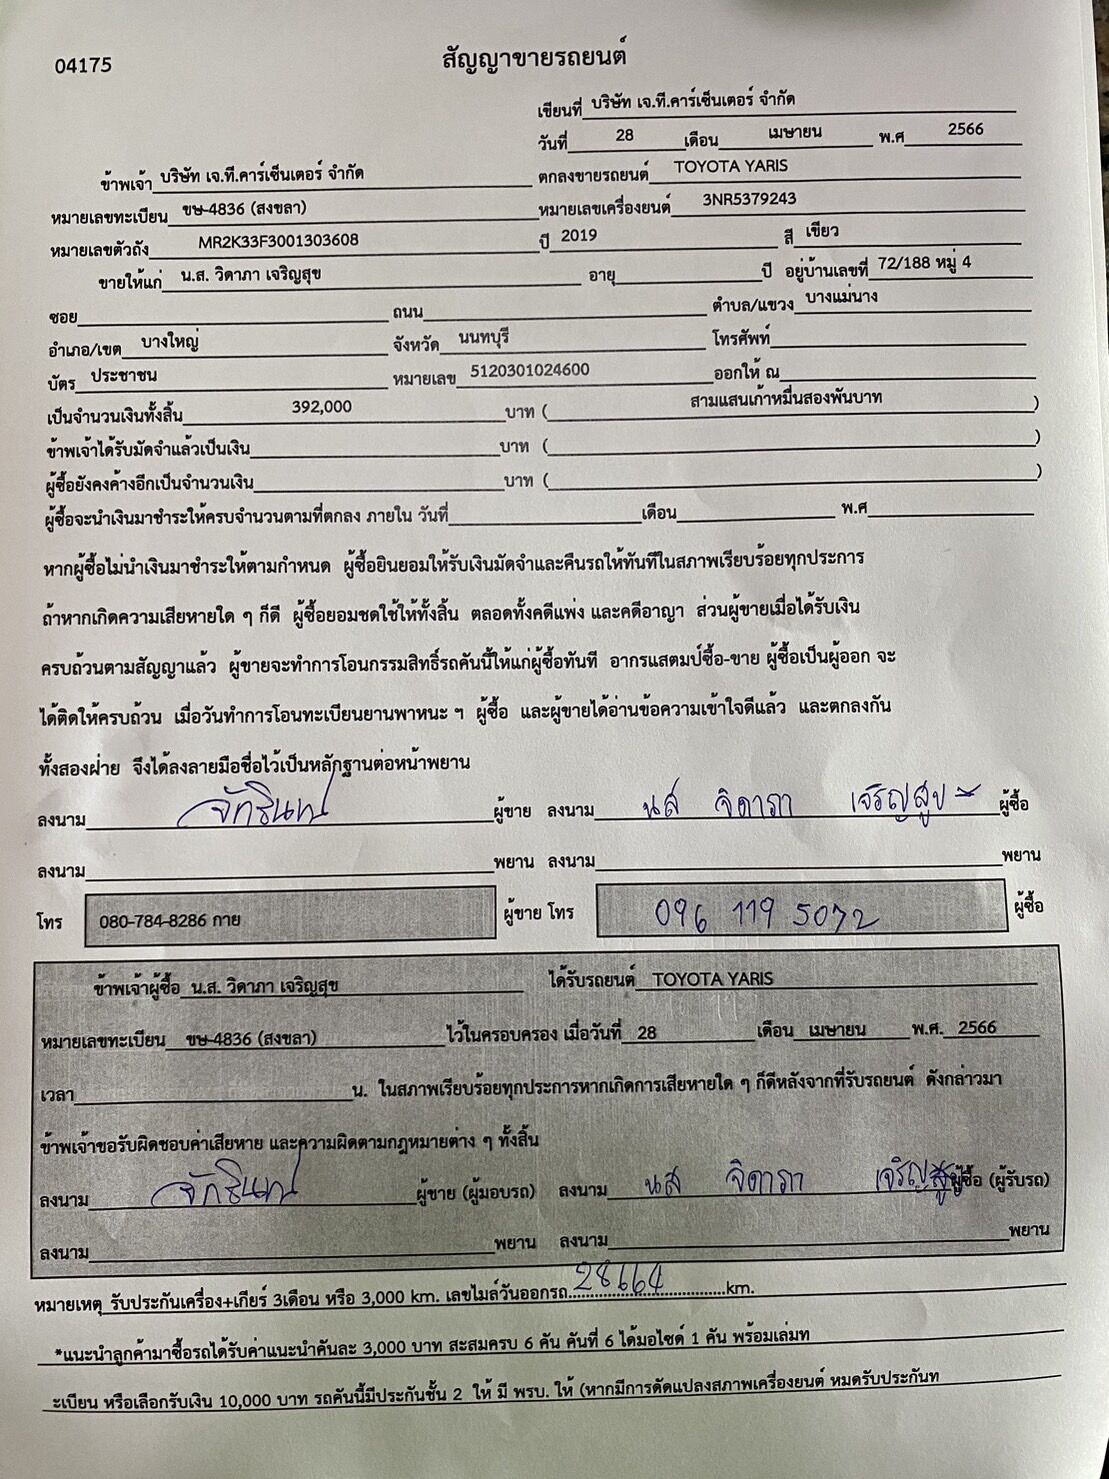 04175
สัญญาขายรถยนต์
เขียนที่ บริษัท เจ.ที.คาร์เซ็นเตอร์ จำกัด
วันที่ 28 เดือน เมษายน พ.ศ 2566
ข้าพเจ้า บริษัท เจ.ที.คาร์เซ็นเตอร์ จำกัด ตกลงขายรถยนต์ TOYOTA YARIS
หมายเลขทะเบียน ขษ-4836 (สงขลา) หมายเลขเครื่องยนต์ 3NR5379243
หมายเลขตัวถัง MR2K33F3001303608 ปี 2019 สี เขียว
ขายให้แก่ น.ส. วิดาภา เจริญสุข อายุ ปี อยู่บ้านเลขที่ 72/188 หมู่ 4
ซอย ถนน ตำบล/แขวง บางแม่นาง
อำเภอ/เขต บางใหญ่ จังหวัด นนทบุรี โทรศัพท์
บัตร ประชาชน หมายเลข 5120301024600 ออกให้ ณ
เป็นจำนวนเงินทั้งสิ้น 392,000 บาท ( สามแสนเก้าหมื่นสองพันบาท )
ข้าพเจ้าได้รับมัดจำแล้วเป็นเงิน บาท ( )
ผู้ซื้อยังคงค้างอีกเป็นจำนวนเงิน บาท ( )
ผู้ซื้อจะนำเงินมาชำระให้ครบจำนวนตามที่ตกลง ภายใน วันที่ เดือน พ.ศ
หากผู้ซื้อไม่นำเงินมาชำระให้ตามกำหนด ผู้ซื้อยินยอมให้รับเงินมัดจำและคืนรถให้ทันทีในสภาพเรียบร้อยทุกประการ
ถ้าหากเกิดความเสียหายใด ๆ ก็ดี ผู้ซื้อยอมชดใช้ให้ทั้งสิ้น ตลอดทั้งคดีแพ่ง และคดีอาญา ส่วนผู้ขายเมื่อได้รับเงิน
ครบถ้วนตามสัญญาแล้ว ผู้ขายจะทำการโอนกรรมสิทธิ์รถคันนี้ให้แก่ผู้ซื้อทันที อากรแสตมป์ซื้อ-ขาย ผู้ซื้อเป็นผู้ออก จะ
ได้ติดให้ครบถ้วน เมื่อวันทำการโอนทะเบียนยานพาหนะ ฯ ผู้ซื้อ และผู้ขายได้อ่านข้อความเข้าใจดีแล้ว และตกลงกัน
ทั้งสองฝ่าย จึงได้ลงลายมือชื่อไว้เป็นหลักฐานต่อหน้าพยาน
ลงนาม จักรินทร์ ผู้ขาย ลงนาม นส จิดาภา เจริญสุข ผู้ซื้อ
ลงนาม พยาน ลงนาม พยาน
โทร 080-784-8286 กาย ผู้ขาย โทร 096 119 5072 ผู้ซื้อ
ข้าพเจ้าผู้ซื้อ น.ส. วิดาภา เจริญสุข ได้รับรถยนต์ TOYOTA YARIS
หมายเลขทะเบียน ขษ-4836 (สงขลา) ไว้ในครอบครอง เมื่อวันที่ 28 เดือน เมษายน พ.ศ. 2566
เวลา น. ในสภาพเรียบร้อยทุกประการหากเกิดการเสียหายใด ๆ ก็ดีหลังจากที่รับรถยนต์ ดังกล่าวมา
ข้าพเจ้าขอรับผิดชอบค่าเสียหาย และความผิดตามกฎหมายต่าง ๆ ทั้งสิ้น
ลงนาม จักรินทร์ ผู้ขาย (ผู้มอบรถ) ลงนาม นส จิดาภา เจริญสุข ผู้ซื้อ (ผู้รับรถ)
ลงนาม พยาน ลงนาม พยาน
หมายเหตุ รับประกันเครื่อง+เกียร์ 3เดือน หรือ 3,000 km. เลขไมล์วันออกรถ 28664 km.
*แนะนำลูกค้ามาซื้อรถได้รับค่าแนะนำคันละ 3,000 บาท สะสมครบ 6 คัน คันที่ 6 ได้มอไซด์ 1 คัน พร้อมเล่มท
ะเบียน หรือเลือกรับเงิน 10,000 บาท รถคันนี้มีประกันชั้น 2 ให้ มี พรบ. ให้ (หากมีการดัดแปลงสภาพเครื่องยนต์ หมดรับประกันท